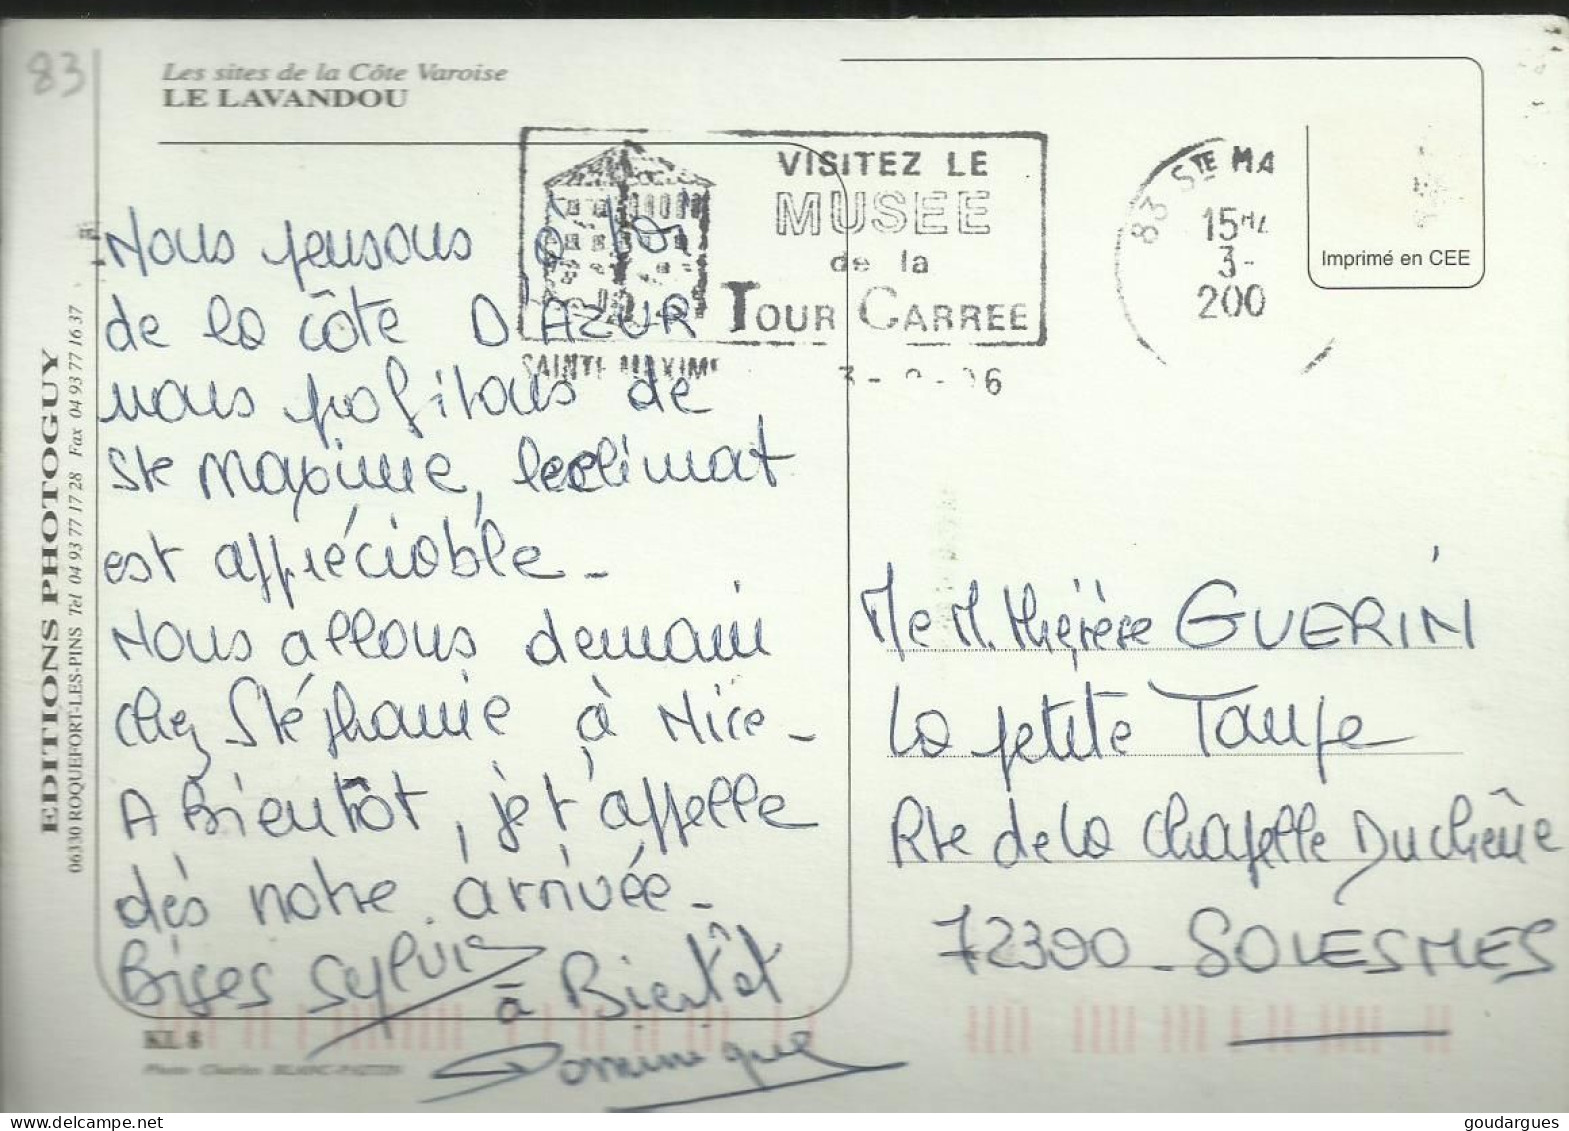 83
Les sites de la Côte Varoise
LE LAVANDOU
VISITEZ LE
MUSEE
de la
TOUR CARREE
SAINTE MAXIME
83 STE MA
15H
3-
200
Imprimé en CEE
Nous pensons à toi
de la côte D'AZUR
nous profitons de
Ste Maxime, le climat
est appréciable -
Nous allons demain
chez Stéphanie à Nice -
A Bientôt, je t'appelle
dès notre arrivée -
Bises Sylvie
à Bientôt
Dominique
Me M. Thérèse GUERIN
La petite Taupe
Rte de la Chapelle Du Chêne
72300 - SOLESMES
EDITIONS PHOTOGUY
06330 ROQUEFORT-LES-PINS Tel 04 93 77 17 28 Fax 04 93 77 16 37
KL 8
Photo Charles BLANC-PATTIN
delcampe.net
goudargues